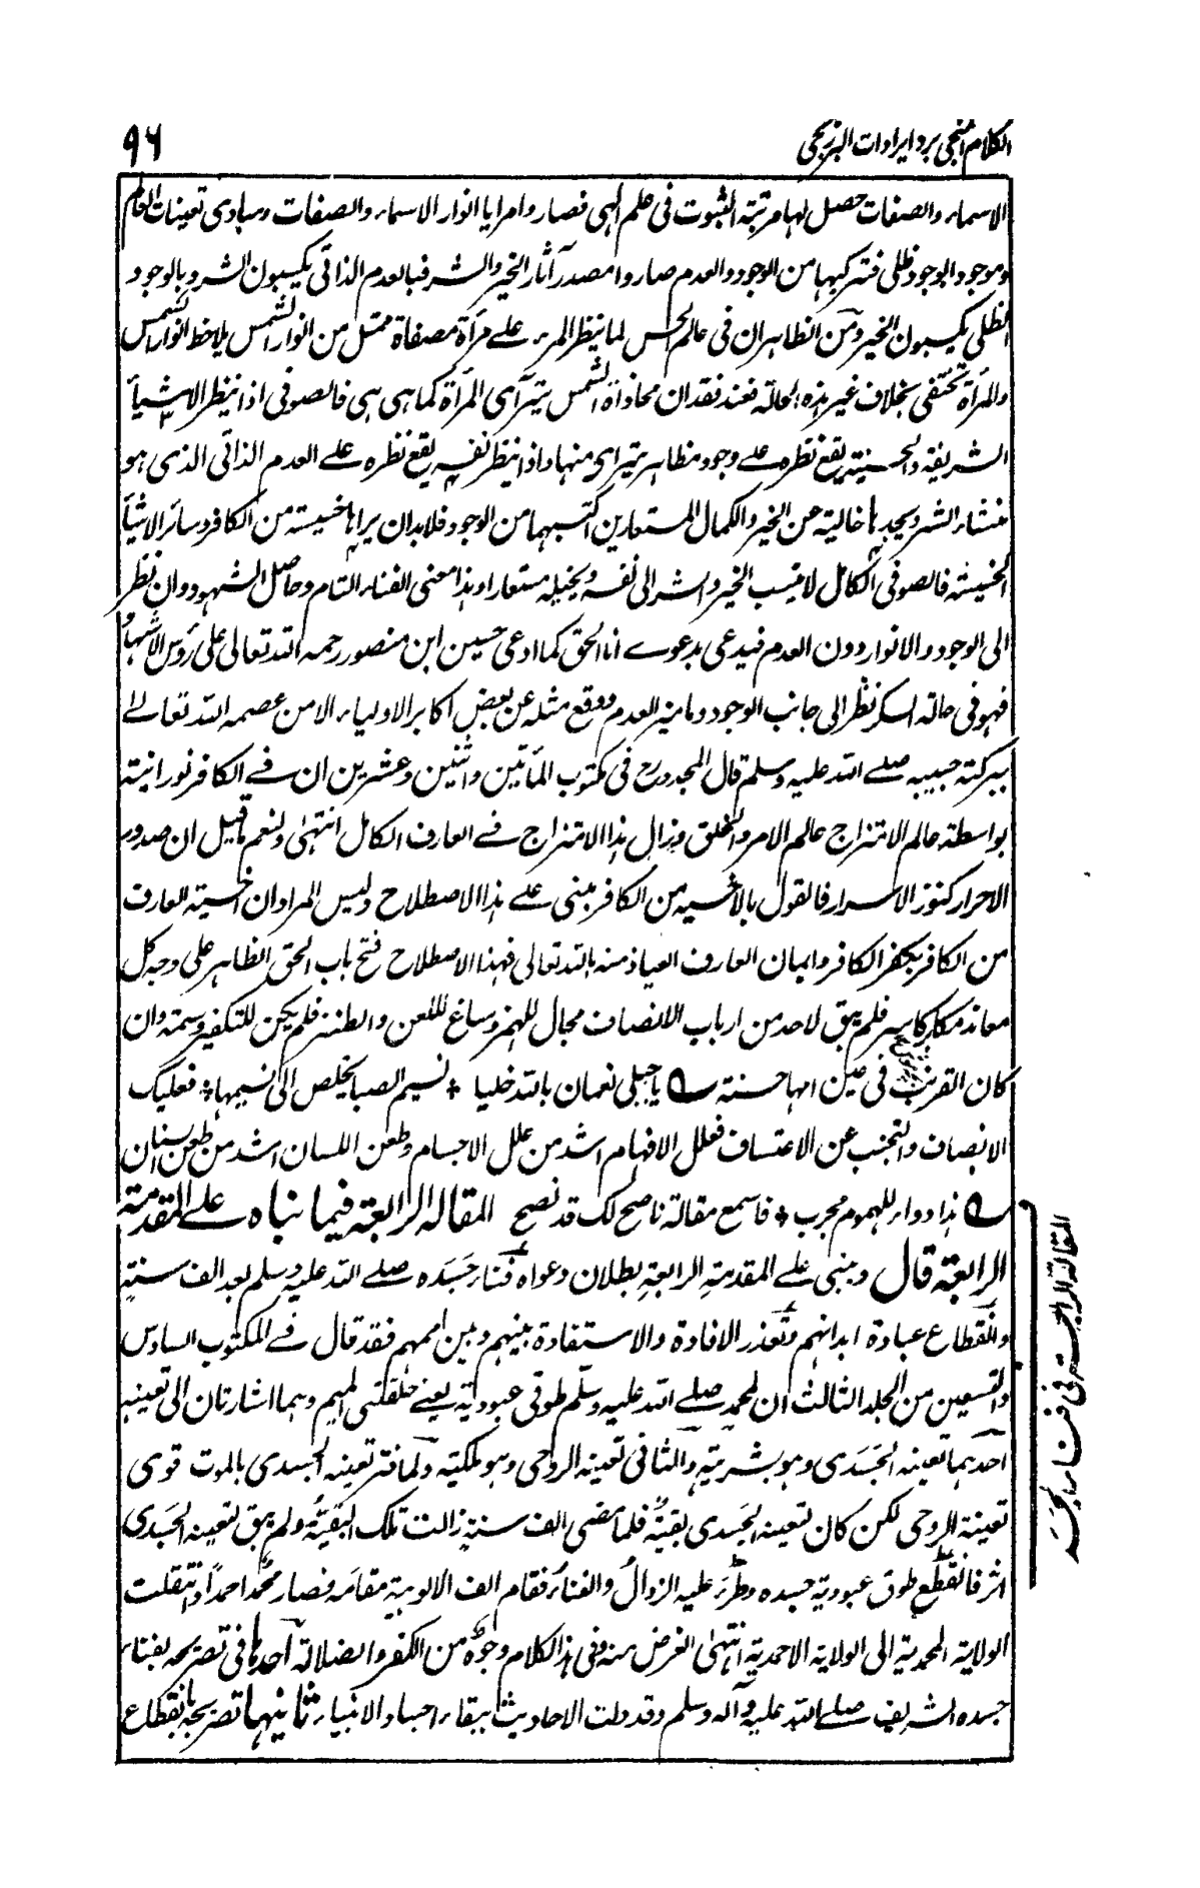 الكلام المنجى برد ايرادات البرزنجى
٩٦
الاسماء والصفات حصل لها مرتبة الثبوت فى علم الٰهى فصاروا مرايا انوار الاسماء والصفات ومبادى تعينات العالم
وموجود الوجود ظلى فتركبها من الوجود والعدم صاروا مصدر آثار الخير والشر فبالعدم الذاتى يكسبون الشر وبالوجود
الظلى يكسبون الخير ومن الظاهران فى عالم الحس لما ينظر المرء على مرأة مصفاة ممثل من انوار الشمس يلاحظ انوار الشمس
والمرأة تختفى بخلاف غير هذه الحالة فعند فقدان محاذاة الشمس يترآى المرأة كما هى هى فالصوفى اذا ينظر الاشيأ
الشريفة والحسينة يقع نظره على وجود مظاهر يتراى منها واذا ينظر نفسه يقع نظره على العدم الذاتى الذى هو
منشاء الشر ويجدها خالية عن الخير والكمال المستعارين اكتسبهما من الوجود فلابد ان يراها خسيسة من الكافر وسائر الاشيأ
الخسيسة فالصوفى الكامل لا ينسب الخير والشر الى نفسه ويخيله مستعارا وهذا معنى الفناء التام وحاصل الشهود وان نظر
الى الوجود والانوار دون العدم فيدعى بدعوے انا الحق كما ادعى حسين ابن منصور رحمه الله تعالى على رؤس الاشهاد
فهو فى حالة السكر نظر الى جانب الوجود وما ميز العدم ووقع مثله عن بعض اكابر الاولياء الا من عصمه الله تعالے
ببركة حبيبه صلے الله عليه وسلم قال المجدد رح فى مكتوب المأتين واثنين وعشرين ان فے الكافر نورانية
بواسطة عالم الامتزاج عالم الامر والخلق ويزال هذا الامتزاج فے العارف الكامل انتهى ولنعم ما قيل ان صدور
الاحرار كنوز الاسرار فالقول بالاخسية من الكافر مبنى علے هذا الاصطلاح وليس المراد ان اخسية العارف
من الكافر بكفر الكافر وايمان العارف العياذ منه بالله تعالى فهذا الاصطلاح فتح باب الحق الظاهر على وجه كل
معاند مكابر فلم يبق لاحد من ارباب الانصاف مجال للهمز وساغ للطعن والطنز فلم يكن للتكفير وسمة وان
كان القرينة فى عين امها حسنة ے يا جبلى نعمان بالله خليا * نسيم الصبا يخلص الى نسيمها * فعليك
الانصاف والتجنب عن الاعتساف فعلل الافهام اشد من علل الاجسام وطعن اللسان اشد من طعن السنان
ے هذا دواء للهموم مجرب * فاسمع مقالة ناصح لك قد نصح المقالة الرابعة فيما بناه على المقدمة
الرابعة قال ومبنى على المقدمة الرابعة بطلان دعواه فناء جسده صلے الله عليه وسلم بعد الف سنة
وانقطاع عبادة ابدانهم وتعذر الافادة والاستفادة بينهم وبين اممهم فقد قال فے المكتوب السادس
والتسعين من الجلد الثالث ان لمحمد صلے الله عليه وسلم طوقى عبودية يعنے حلقتى الميم وهما اشارتان الى تعينيه
احدهما تعينه الجسدى وهو بشريته والثانى تعينه الروحى وهو ملكيته ولما فتر تعينه الجسدى بالموت قوى
تعينه الروحى لكن كان لتعينه الجسدى بقية فلما مضى الف سنة زالت تلك البقية ولم يبق لتعينه الجسدى
اثر فانقطع طوق عبودية جسده وطرء عليه الزوال والفناء فقام الف الالوهية مقامه فصار محمد احمدا وانتقلت
الولاية المحمدية الى الولاية الاحمدية انتهى الغرض منه وفى هذا الكلام وجوه من الكفر والضلالة احدها فى تصريحه بفناء
جسده الشريف صلے الله عليه وآله وسلم وقد دلت الاحاديث ببقاء اجساد الانبياء ثانيها تصريحه بانقطاع
المقالة الرابعة فى فناء الجسد